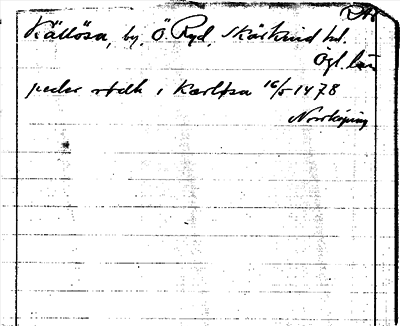 Källösa, by, Ö. Ryd, Skärkind hd.
Ögl. län
peder rödh i Kærløsa 16/5 1478
Norrköping